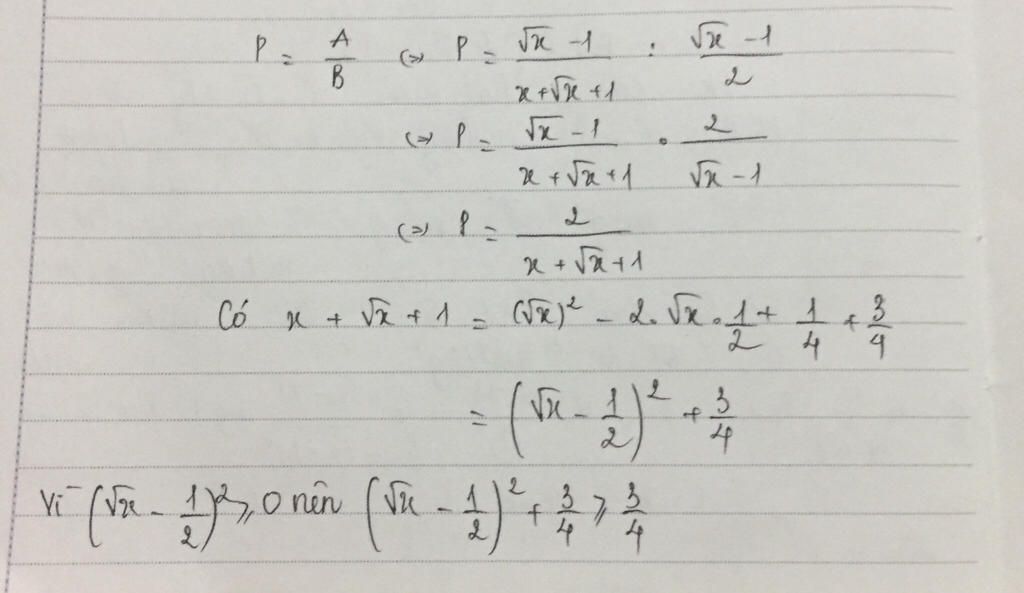 P = A/B ⇔ P = (√x - 1)/(x + √x + 1) : (√x - 1)/2
⇔ P = (√x - 1)/(x + √x + 1) . 2/(√x - 1)
⇔ P = 2/(x + √x + 1)
Có x + √x + 1 = (√x)² - 2.√x.1/2 + 1/4 + 3/4
= (√x - 1/2)² + 3/4
Vì (√x - 1/2)² ≥ 0 nên (√x - 1/2)² + 3/4 ≥ 3/4